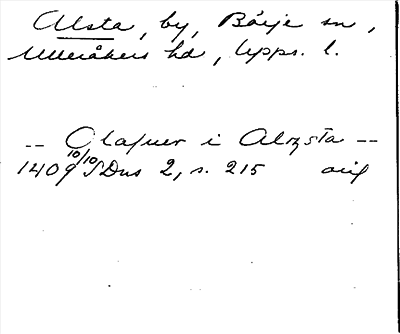 Alsta, by, Börje sn,
Ulleråkers hd, Upps. l.
-- Olafuer i Alzsta --
1409 10/10 SDns 2, s. 215 orig